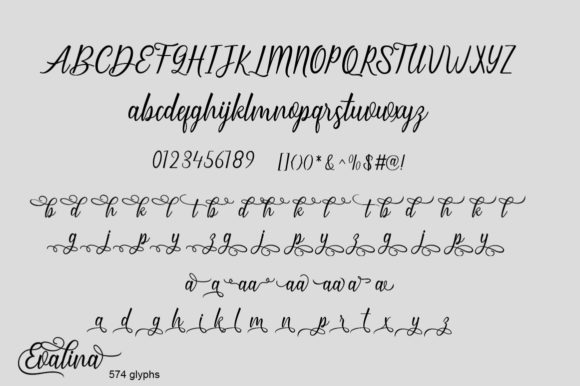 ABCDEFGHIJKLMNOPQRSTUVWXYZ
abcdefghijklmnopqrstuvwxyz
0123456789 []()*&^%$#@!
b d h k l t b d h k l t b d h k l
g j p y z g j p y z g j p y
a a aa aa aa a
a d g h i k l m n p r t x y z
Evalina 574 glyphs